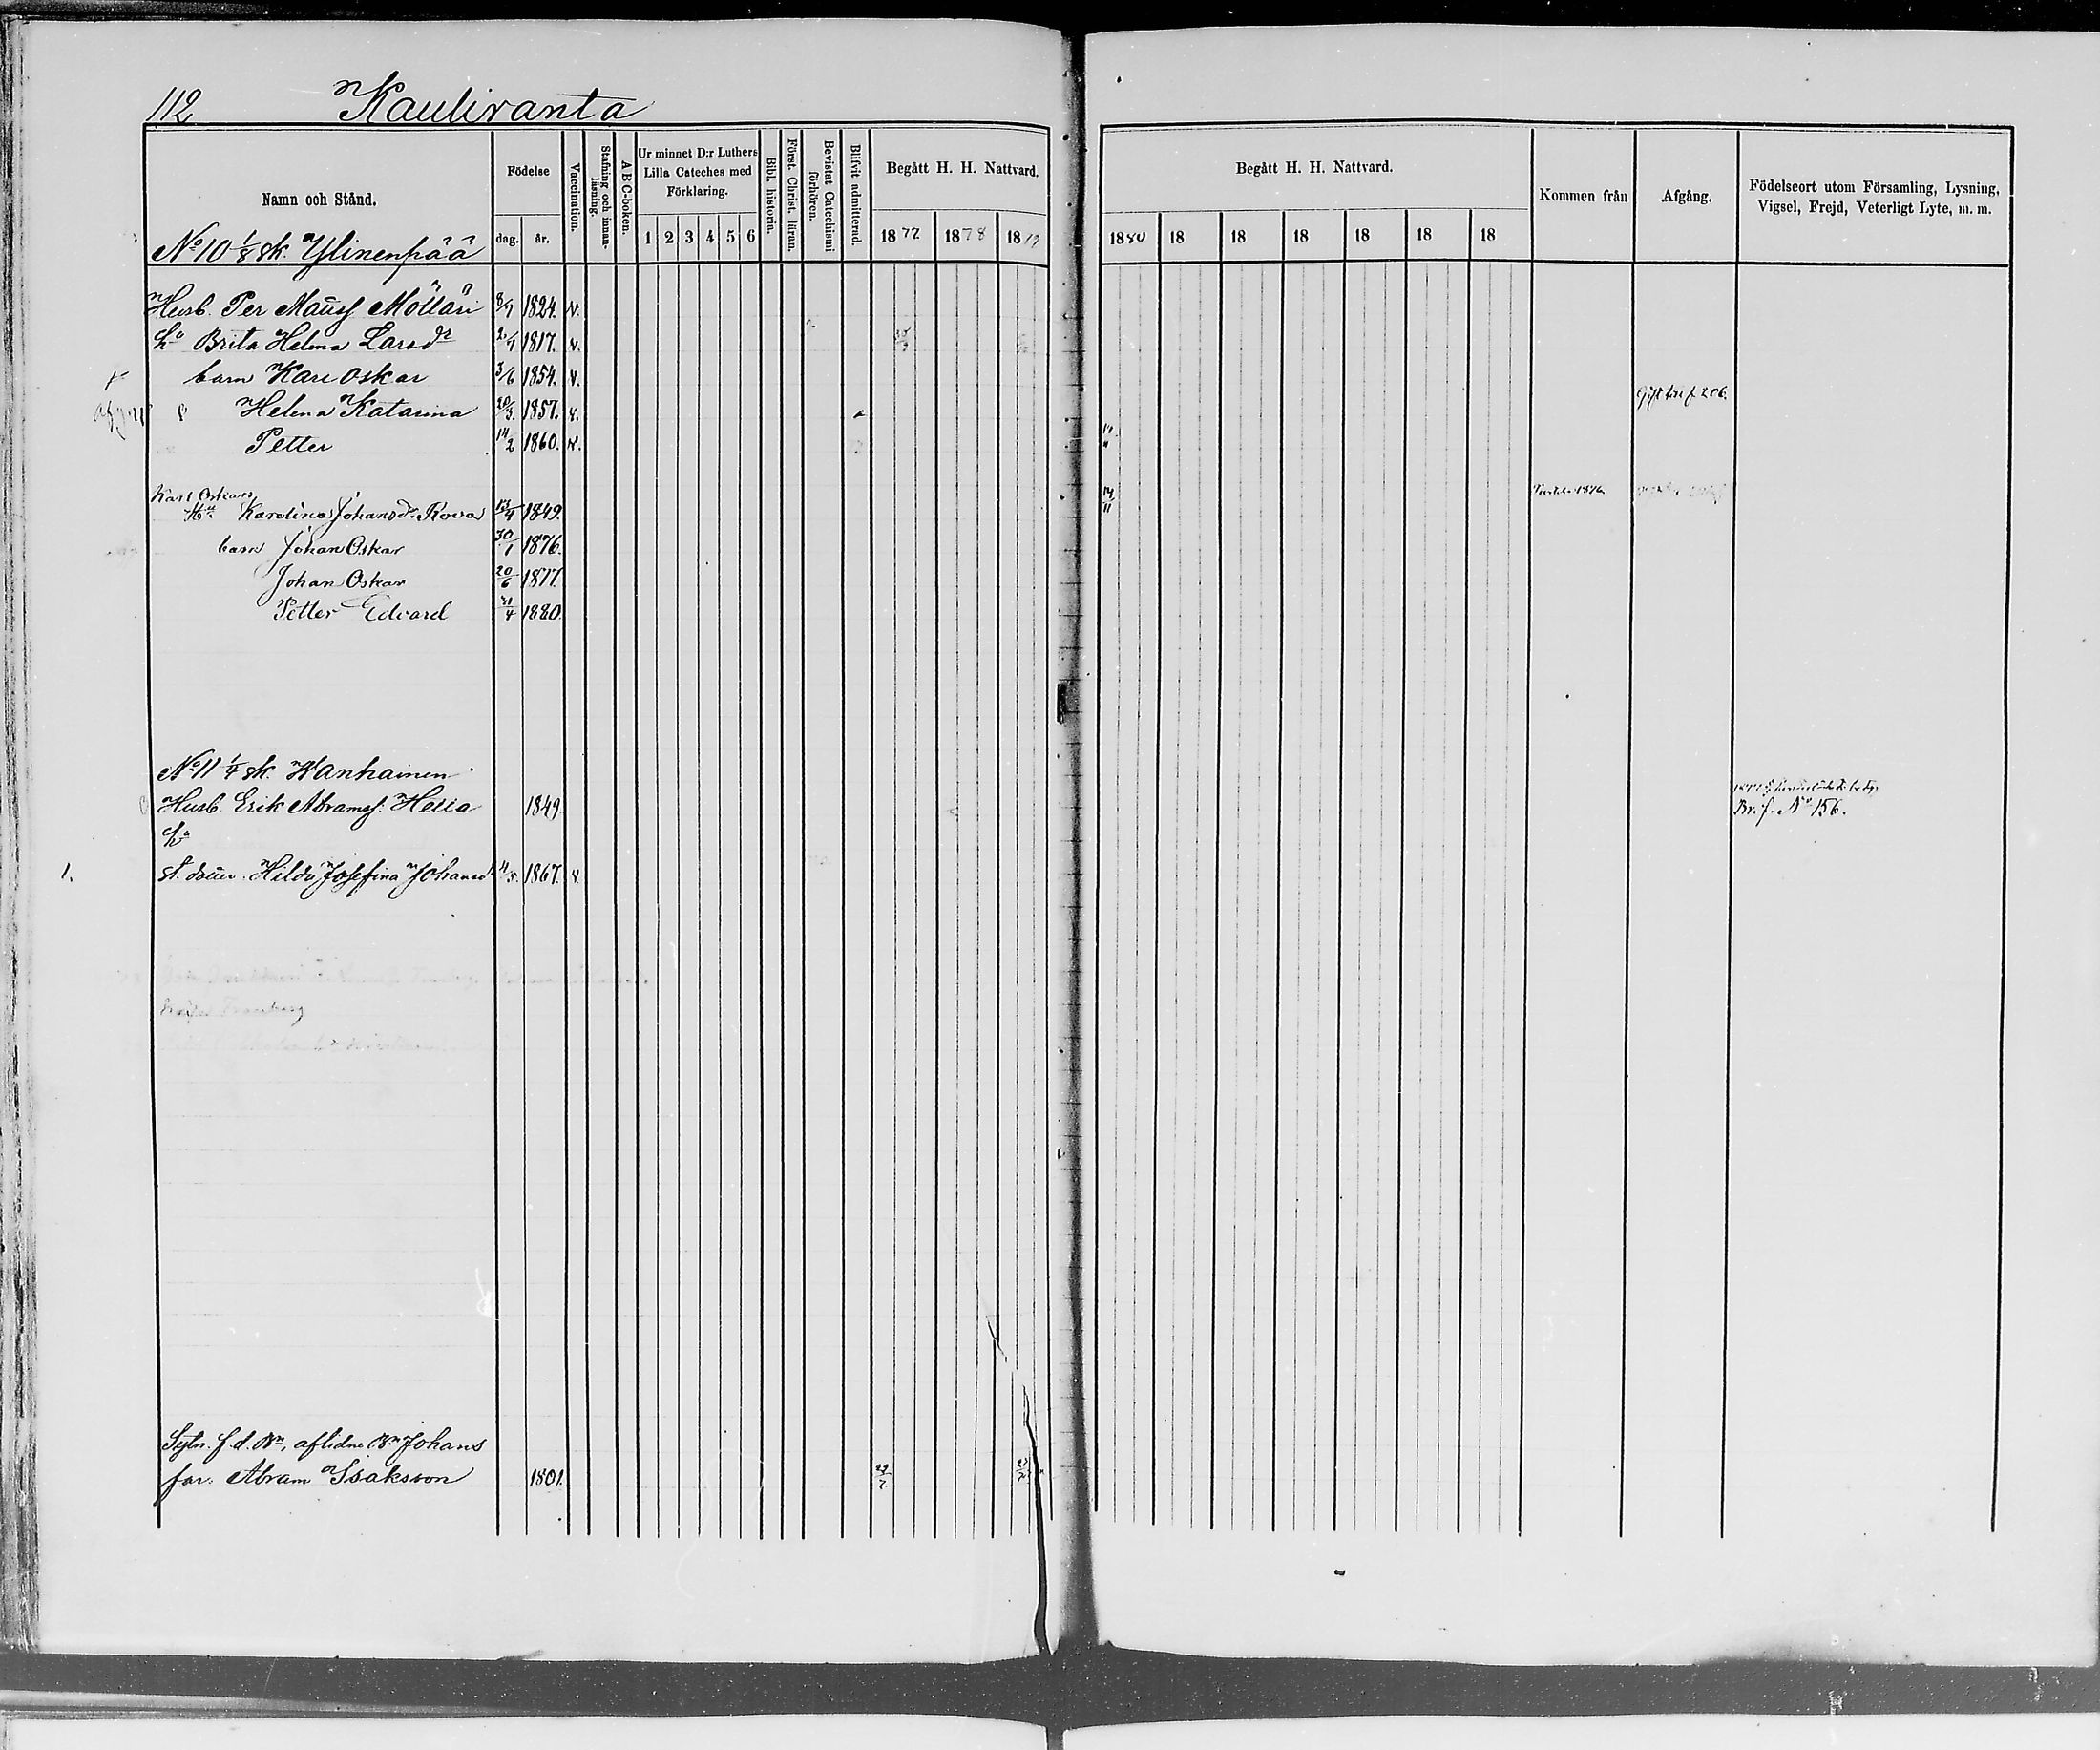 112.
Kauliranta
Namn och Stånd.
Födelse
dag.
år.
Vaccination.
Stafning och innan-
läsning.
ABC-boken.
Ur minnet D:r Luthers
Lilla Cateches med
Förklaring.
1 2 3 4 5 6
Bibl. historin.
Först. Christ. läran.
Bevistat Catechismi
förhören.
Blifvit admitterad.
Begått H. H. Nattvard.
1877 1878 1879
Begått H. H. Nattvard.
1880 18 18 18 18 18 18
Kommen från
Afgång.
Födelseort utom Församling, Lysning,
Vigsel, Frejd, Veterligt Lyte, m. m.
No 10 1/8 sk. Ylinenpää
Husb. Per Mauss Möllari 8/9 1824. v.
Hu Brita Helena Larsdr 2/9 1817. v.
barn Karl Oskar 3/6 1854. v.
Helena Katarina 20/3. 1857. v.
206.
Petter 14/2 1860. v.
Karl Oskars
Hu Karolina Johansdr Rova 13/4 1849. 14/11 1876
barn Johan Oskar 30/1 1876.
Johan Oskar 20/6 1877.
Petter Edvard 21/4 1880.
No 11 1/4 sk. Kanhainen
Husb. Erik Abramss. Heita 1849.
Br. f. No 156.
Hu
1. Hilda Josefina Johansd 4/5. 1867. v.
Sytn. f. d. Bn, aflidne Bn Johans
far: Abram Isaksson 1801. 29/7